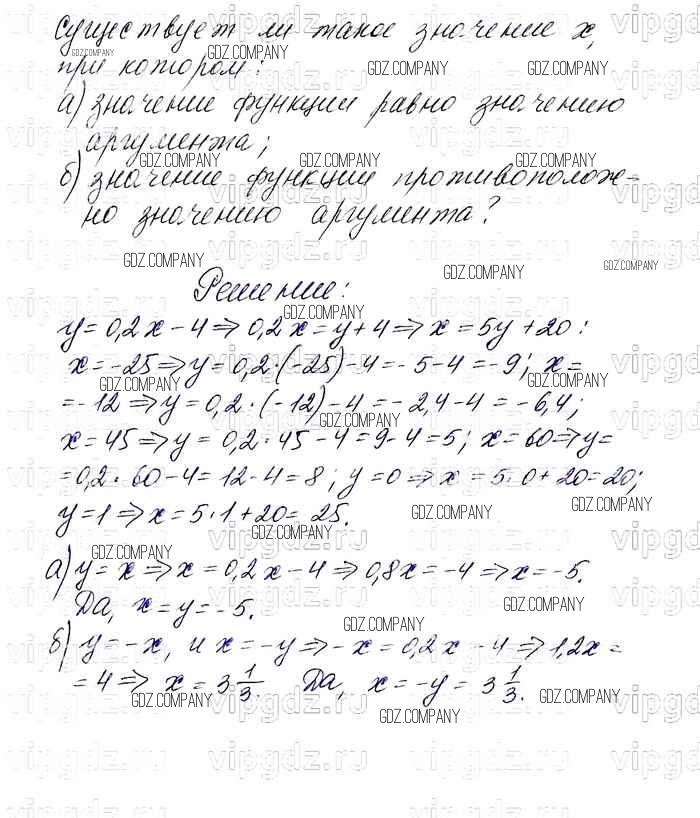 Существует ли такое значение x,
при котором:
а) значение функции равно значению
аргумента;
б) значение функции противополож-
но значению аргумента?
Решение:
y = 0,2x − 4 ⇒ 0,2x = y + 4 ⇒ x = 5y + 20 :
x = −25 ⇒ y = 0,2 · (−25) − 4 = −5 − 4 = −9; x =
= −12 ⇒ y = 0,2 · (−12) − 4 = −2,4 − 4 = −6,4;
x = 45 ⇒ y = 0,2 · 45 − 4 = 9 − 4 = 5; x = 60 ⇒ y =
= 0,2 · 60 − 4 = 12 − 4 = 8; y = 0 ⇒ x = 5 · 0 + 20 = 20;
y = 1 ⇒ x = 5 · 1 + 20 = 25.
а) y = x ⇒ x = 0,2x − 4 ⇒ 0,8x = −4 ⇒ x = −5.
Да, x = y = −5.
б) y = −x, и x = −y ⇒ −x = 0,2x − 4 ⇒ 1,2x =
= 4 ⇒ x = 3 1/3. Да, x = −y = 3 1/3.